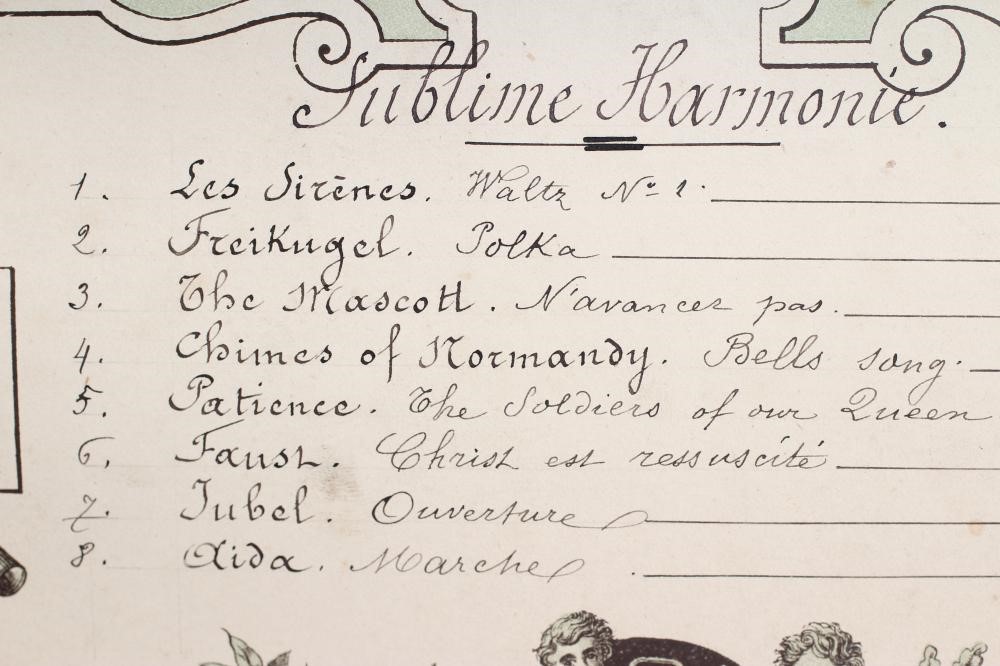 Sublime Harmonie.
1. Les Sirènes. Waltz No 1.
2. Freikugel. Polka
3. The Mascott. N'avancez pas.
4. Chimes of Normandy. Bells song.
5. Patience. The Soldiers of our Queen
6. Faust. Christ est ressuscité
7. Jubel. Ouverture
8. Aida. Marche